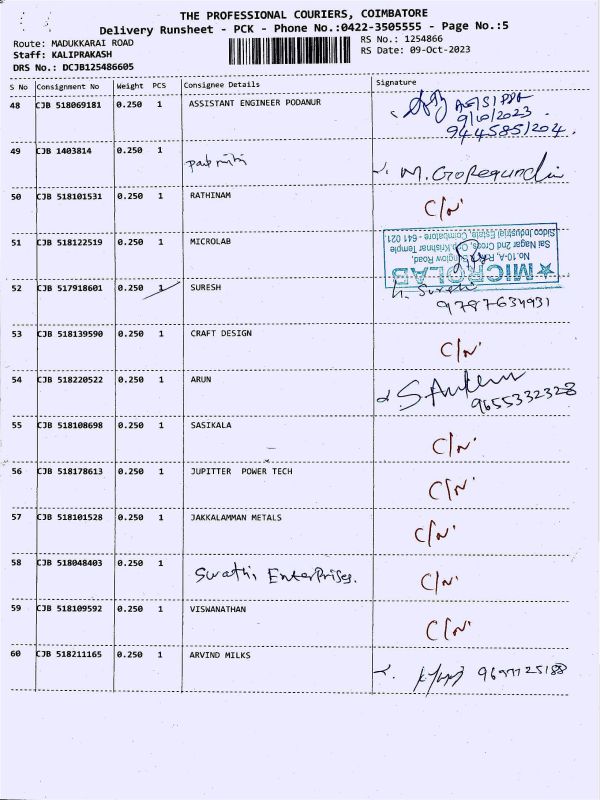 THE PROFESSIONAL COURIERS, COIMBATORE
Delivery Runsheet - PCK - Phone No.:0422-3505555 - Page No.:5
Route: MADUKKARAI ROAD
Staff: KALIPRAKASH
DRS No.: DCJB125486605
RS No.: 1254866
RS Date: 09-Oct-2023
S No Consignment No Weight PCS Consignee Details Signature
48 CJB 518069181 0.250 1 ASSISTANT ENGINEER PODANUR
9/10/2023
9445851204.
49 CJB 1403814 0.250 1
50 CJB 518101531 0.250 1 RATHINAM C/N
51 CJB 518122519 0.250 1 MICROLAB
★MICROLAB
Sai Nagar 2nd Cross, Opp.Krishnar Temple
Sidco Industrial Estate, Coimbatore - 641 021.
52 CJB 517918601 0.250 1 SURESH
9787634931
53 CJB 518139590 0.250 1 CRAFT DESIGN C/N
54 CJB 518220522 0.250 1 ARUN
9655332328
55 CJB 518108698 0.250 1 SASIKALA C/N
56 CJB 518178613 0.250 1 JUPITTER POWER TECH C/N
57 CJB 518101528 0.250 1 JAKKALAMMAN METALS C/N
58 CJB 518048403 0.250 1 Swathi Enterprises. C/N
59 CJB 518109592 0.250 1 VISWANATHAN C/N
60 CJB 518211165 0.250 1 ARVIND MILKS